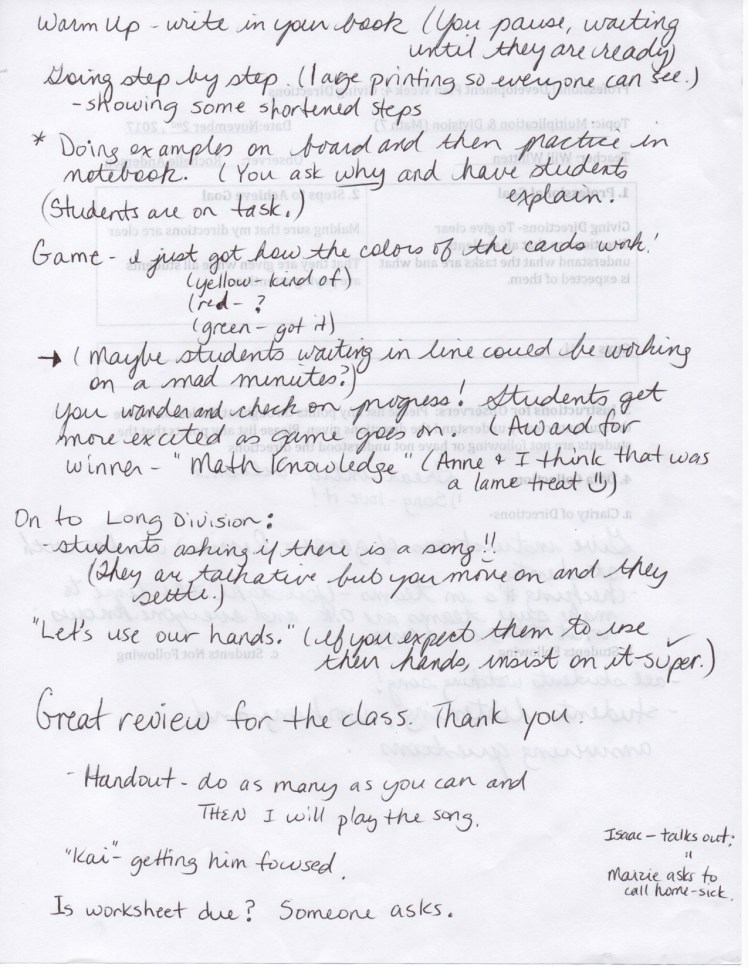 Warm Up - write in your book (You pause, waiting
until they are ready)
Going step by step. (large printing so everyone can see.)
- showing some shortened steps
* Doing examples on board and then practice in
notebook. (You ask why and have students
explain.
(Students are on task.)
Game - I just got how the colors of the cards work!
(yellow - kind of)
(red - ?
(green - got it)
→ (Maybe students waiting in line could be working
on a mad minutes?)
You wander and check on progress! Students get
more excited as game goes on. Award for
winner - "Math Knowledge" (Anne & I think that was
a lame treat ☺)
On to Long Division:
- students asking if there is a song!!
(They are talkative but you move on and they
settle.)
"Let's use our hands." (If you expect them to use
their hands, insist on it - super.)
Great review for the class. Thank you.
- Handout - do as many as you can and
THEN I will play the song.
"Kai" - getting him focused.
Isaac - talks out;
"
Maizie asks to
call home - sick.
Is worksheet due? Someone asks.